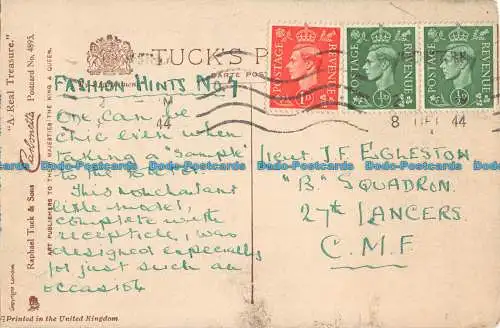 "A Real Treasure."
Carbonell's Postcard No. 4895.
Raphael Tuck & Sons
ART PUBLISHERS TO THEIR MAJESTIES THE KING & QUEEN.
Copyright London.
Printed in the United Kingdom
TUCK'S P
CARTE POST
FASHION HINTS No. 7
One can be
chic even when
taking a "sample"
to the
This nonchalant
little model,
complete with
recepticle, was
designed especially
for just such an
occasion
POSTAGE REVENUE
1D
POSTAGE REVENUE
½D
POSTAGE REVENUE
½D
44
8 DEC 44
Lieut J.F. EGLESTON
"B" SQUADRON
27th LANCERS
C.M.F
Dodo-Postcards